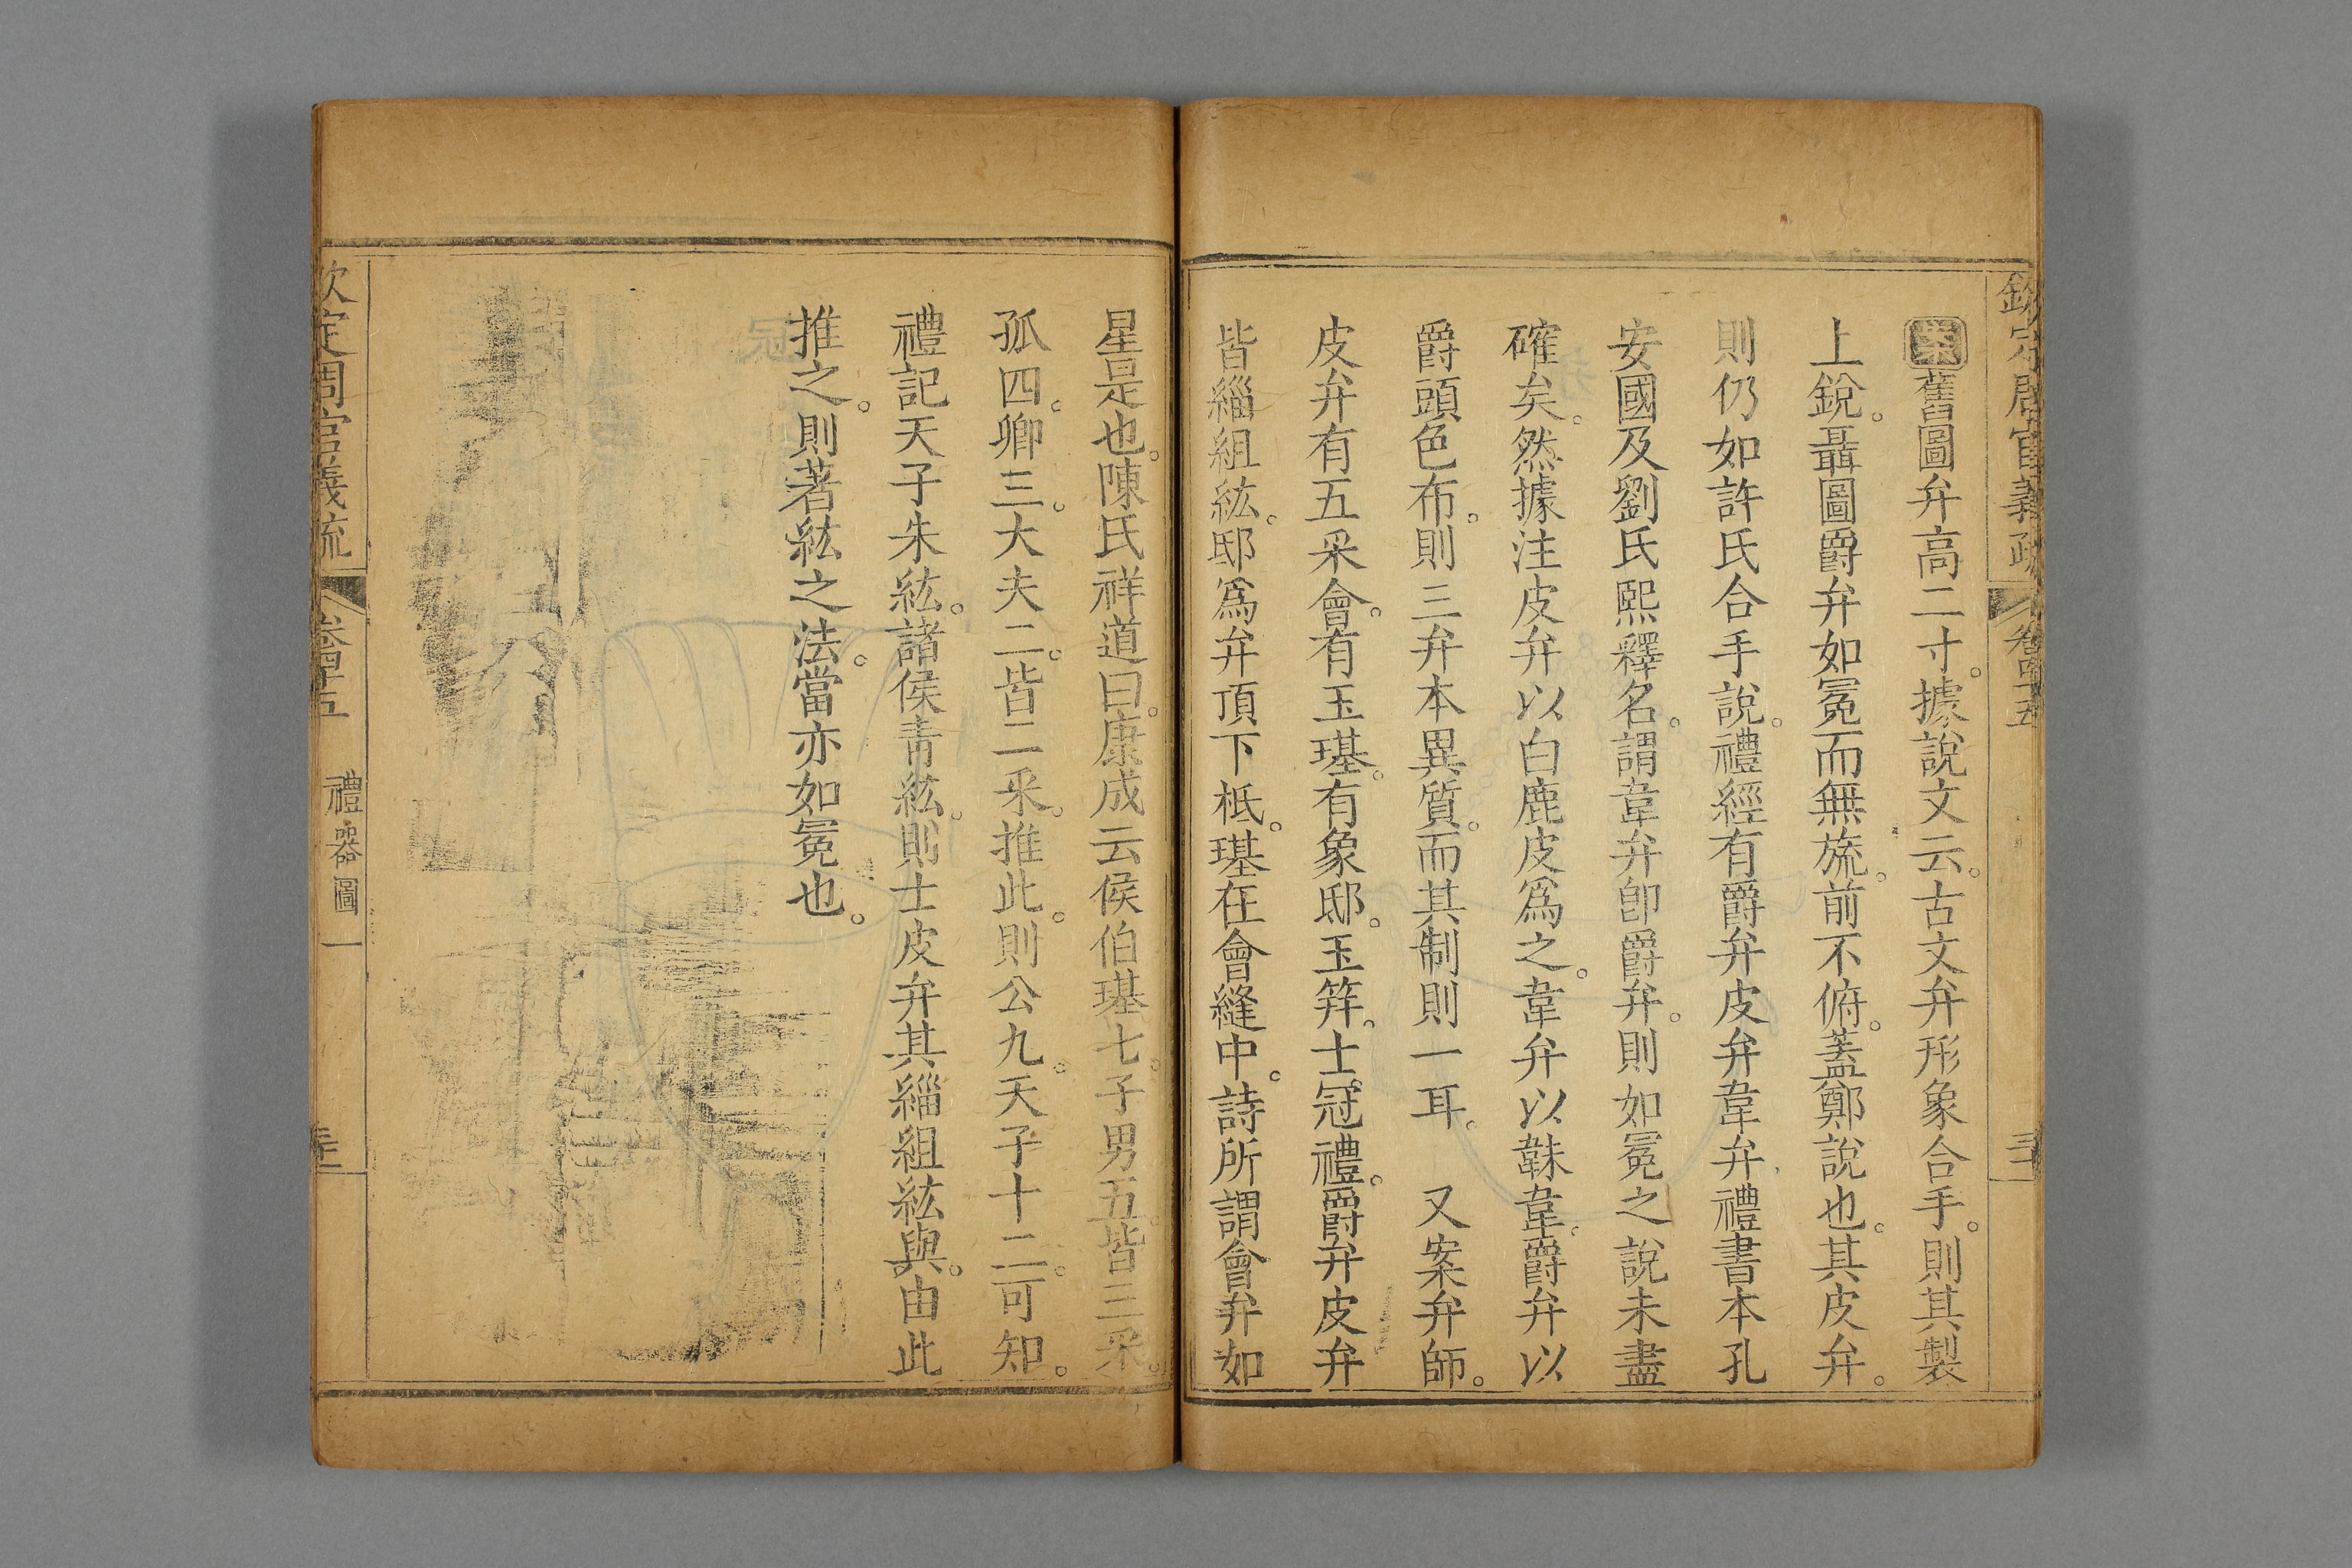 欽定周官義疏 卷四十五
案舊圖弁高二寸。據說文云。古文弁形象合手。則其製
上銳。聶圖爵弁如冕而無旒。前不俯。蓋鄭說也。其皮弁。
則仍如許氏合手說。禮經有爵弁皮弁韋弁禮書本孔
安國及劉氏熙釋名。謂韋弁卽爵弁。則如冕之說未盡
確矣。然據注皮弁以白鹿皮爲之。韋弁以韎韋。爵弁以
爵頭色布。則三弁本異質。而其制則一耳。 又案弁師。
皮弁有五采會。有玉璂。有象邸。玉笄。士冠禮。爵弁皮弁
皆緇組紘。邸爲弁頂下柢。璂在會縫中。詩所謂會弁如
星是也。陳氏祥道曰。康成云侯伯璂七。子男五。皆三采。
孤四。卿三。大夫二。皆二采。推此。則公九。天子十二。可知。
禮記天子朱紘。諸侯靑紘。則士皮弁其緇組紘與。由此
推之。則著紘之法。當亦如冕也。
欽定周官義疏 卷四十五 禮器圖一